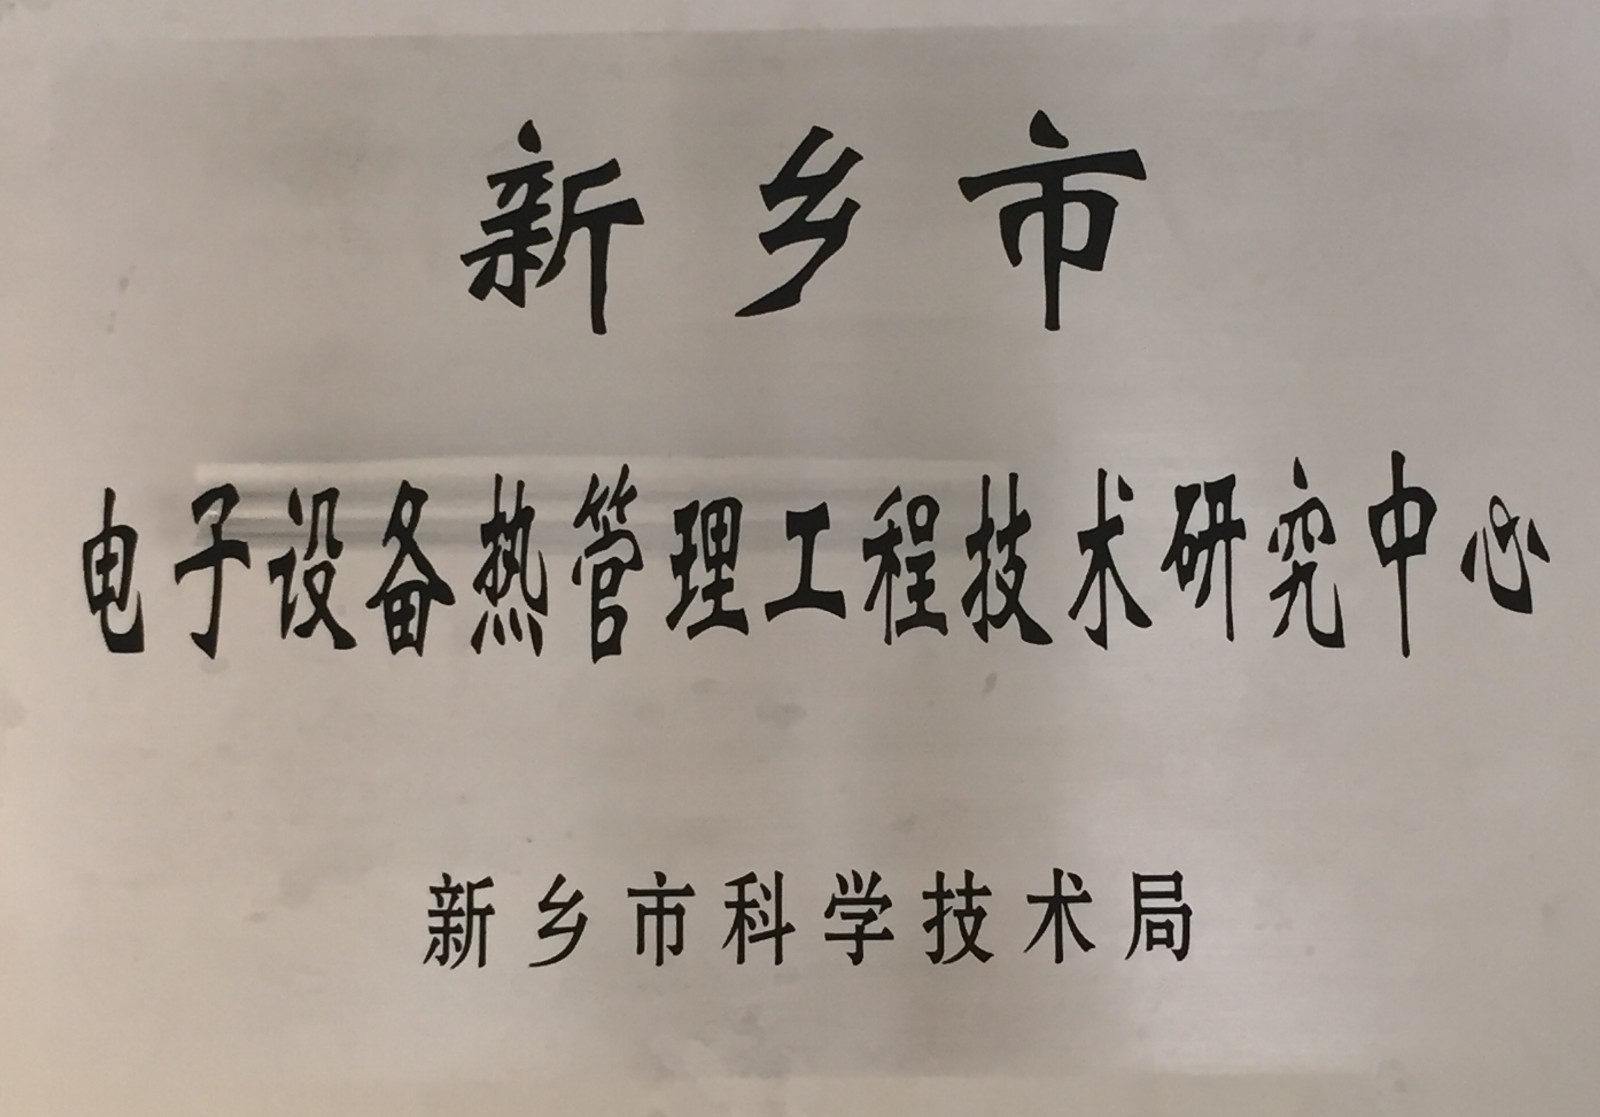 新乡市
电子设备热管理工程技术研究中心
新乡市科学技术局